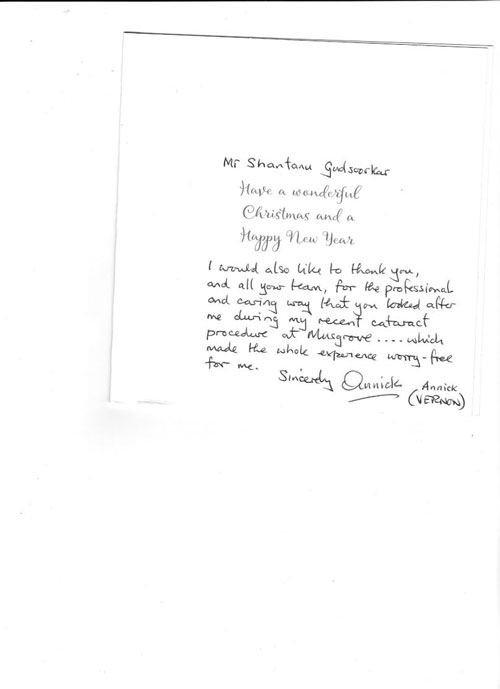 Mr Shantanu Gudsoorkar
Have a wonderful
Christmas and a
Happy New Year
I would also like to thank you,
and all your team, for the professional
and caring way that you looked after
me during my recent cataract
procedure at Musgrove .... which
made the whole experience worry-free
for me.
Sincerely Annick Annick
(VERNON)